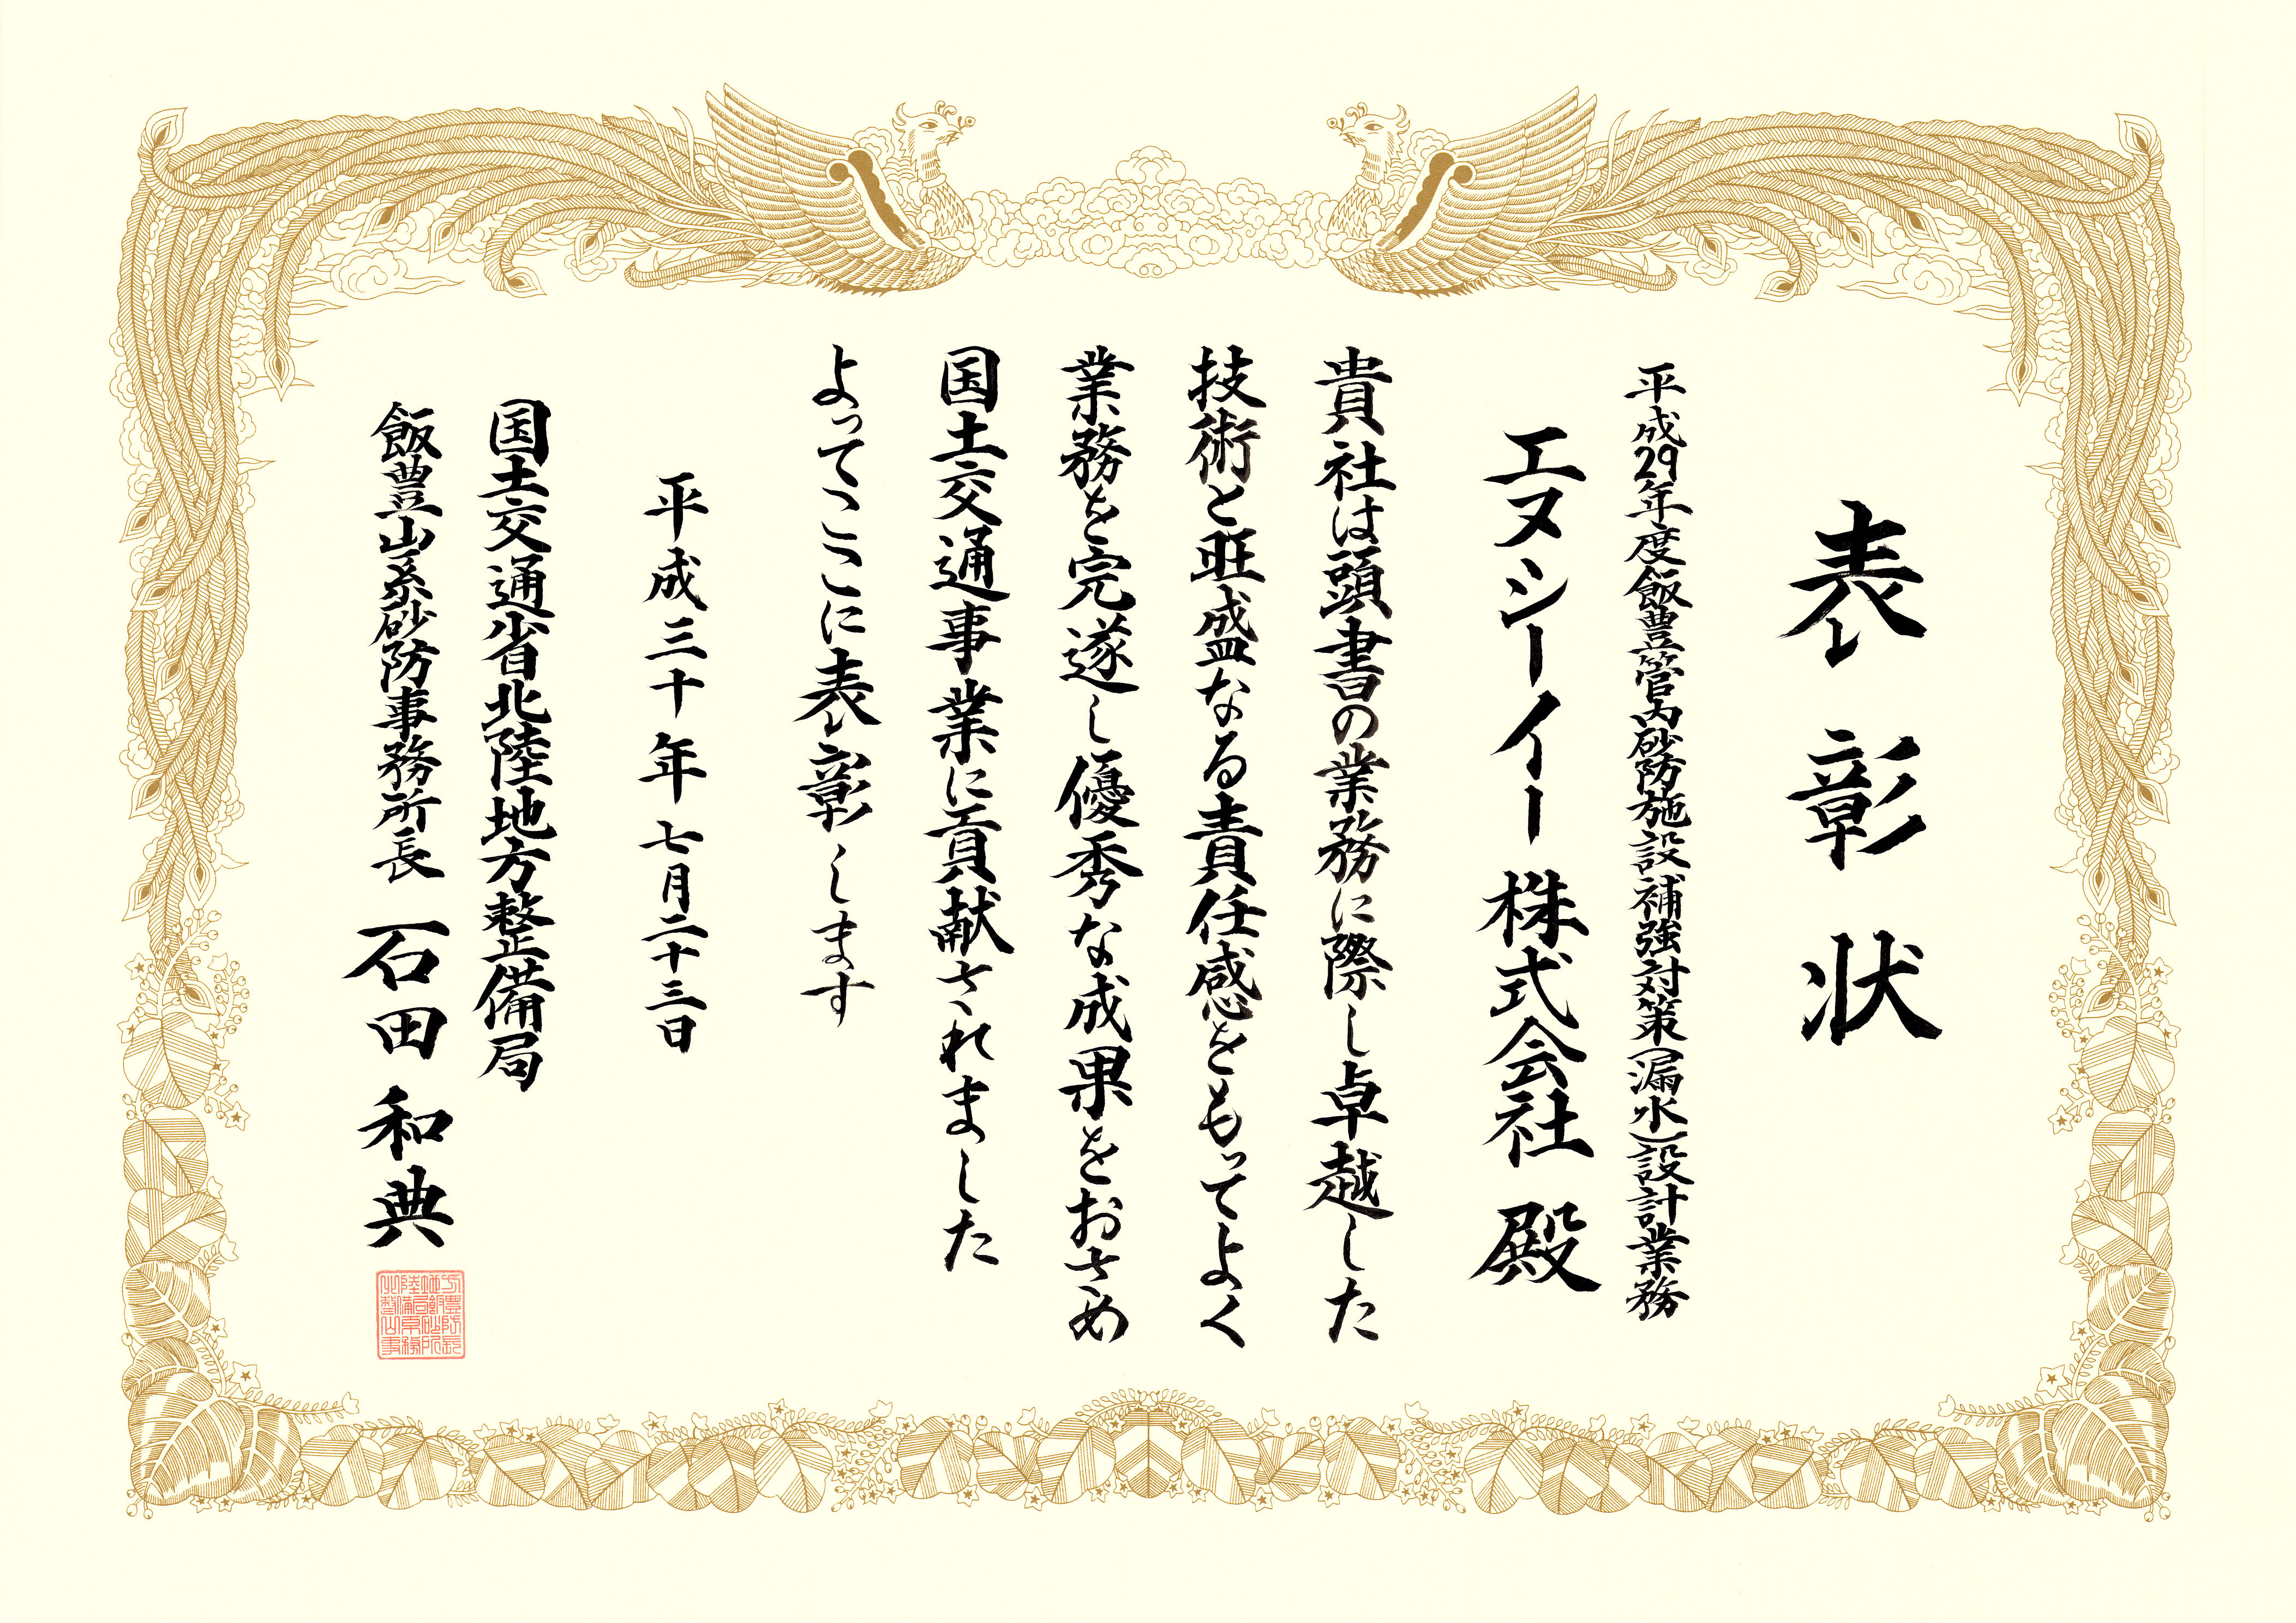 表彰状
平成29年度飯豊管内砂防施設補強対策(漏水)設計業務
エヌシーイー株式会社 殿
貴社は頭書の業務に際し卓越した
技術と旺盛なる責任感をもってよく
業務を完遂し優秀な成果をおさめ
国土交通事業に貢献されました
よってここに表彰します
平成三十年七月二十三日
国土交通省北陸地方整備局
飯豊山系砂防事務所長 石田和典